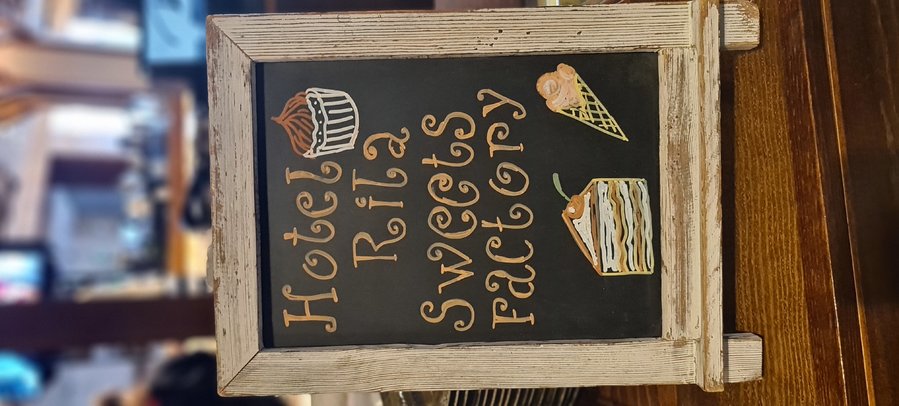 Hotel
Rila
Sweets
Factory